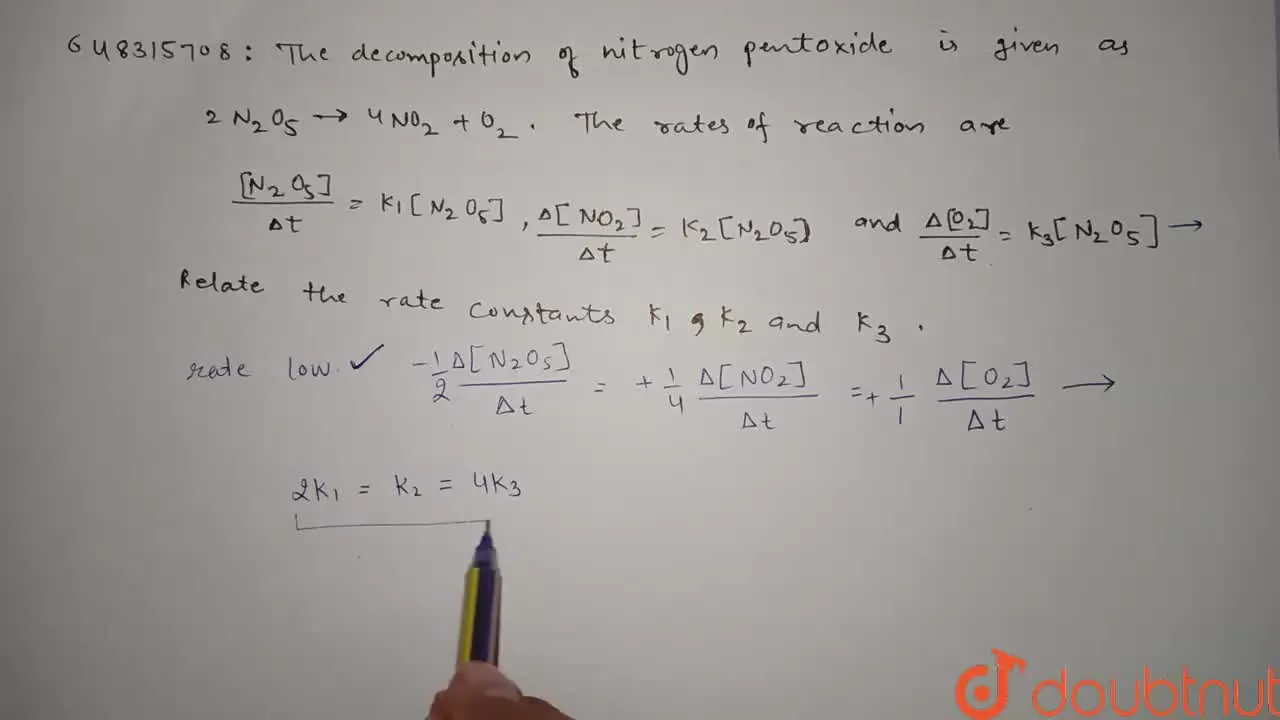 648315708: The decomposition of nitrogen pentoxide is given as
2 N2O5 → 4NO2 + O2. The rates of reaction are
[N2O5]/Δt = K1[N2O5], Δ[NO2]/Δt = K2[N2O5] and Δ[O2]/Δt = K3[N2O5] →
Relate the rate constants K1, K2 and K3.
rate low. ✓ -1/2 Δ[N2O5]/Δt = +1/4 Δ[NO2]/Δt = +1/1 Δ[O2]/Δt →
2K1 = K2 = 4K3
doubtnut